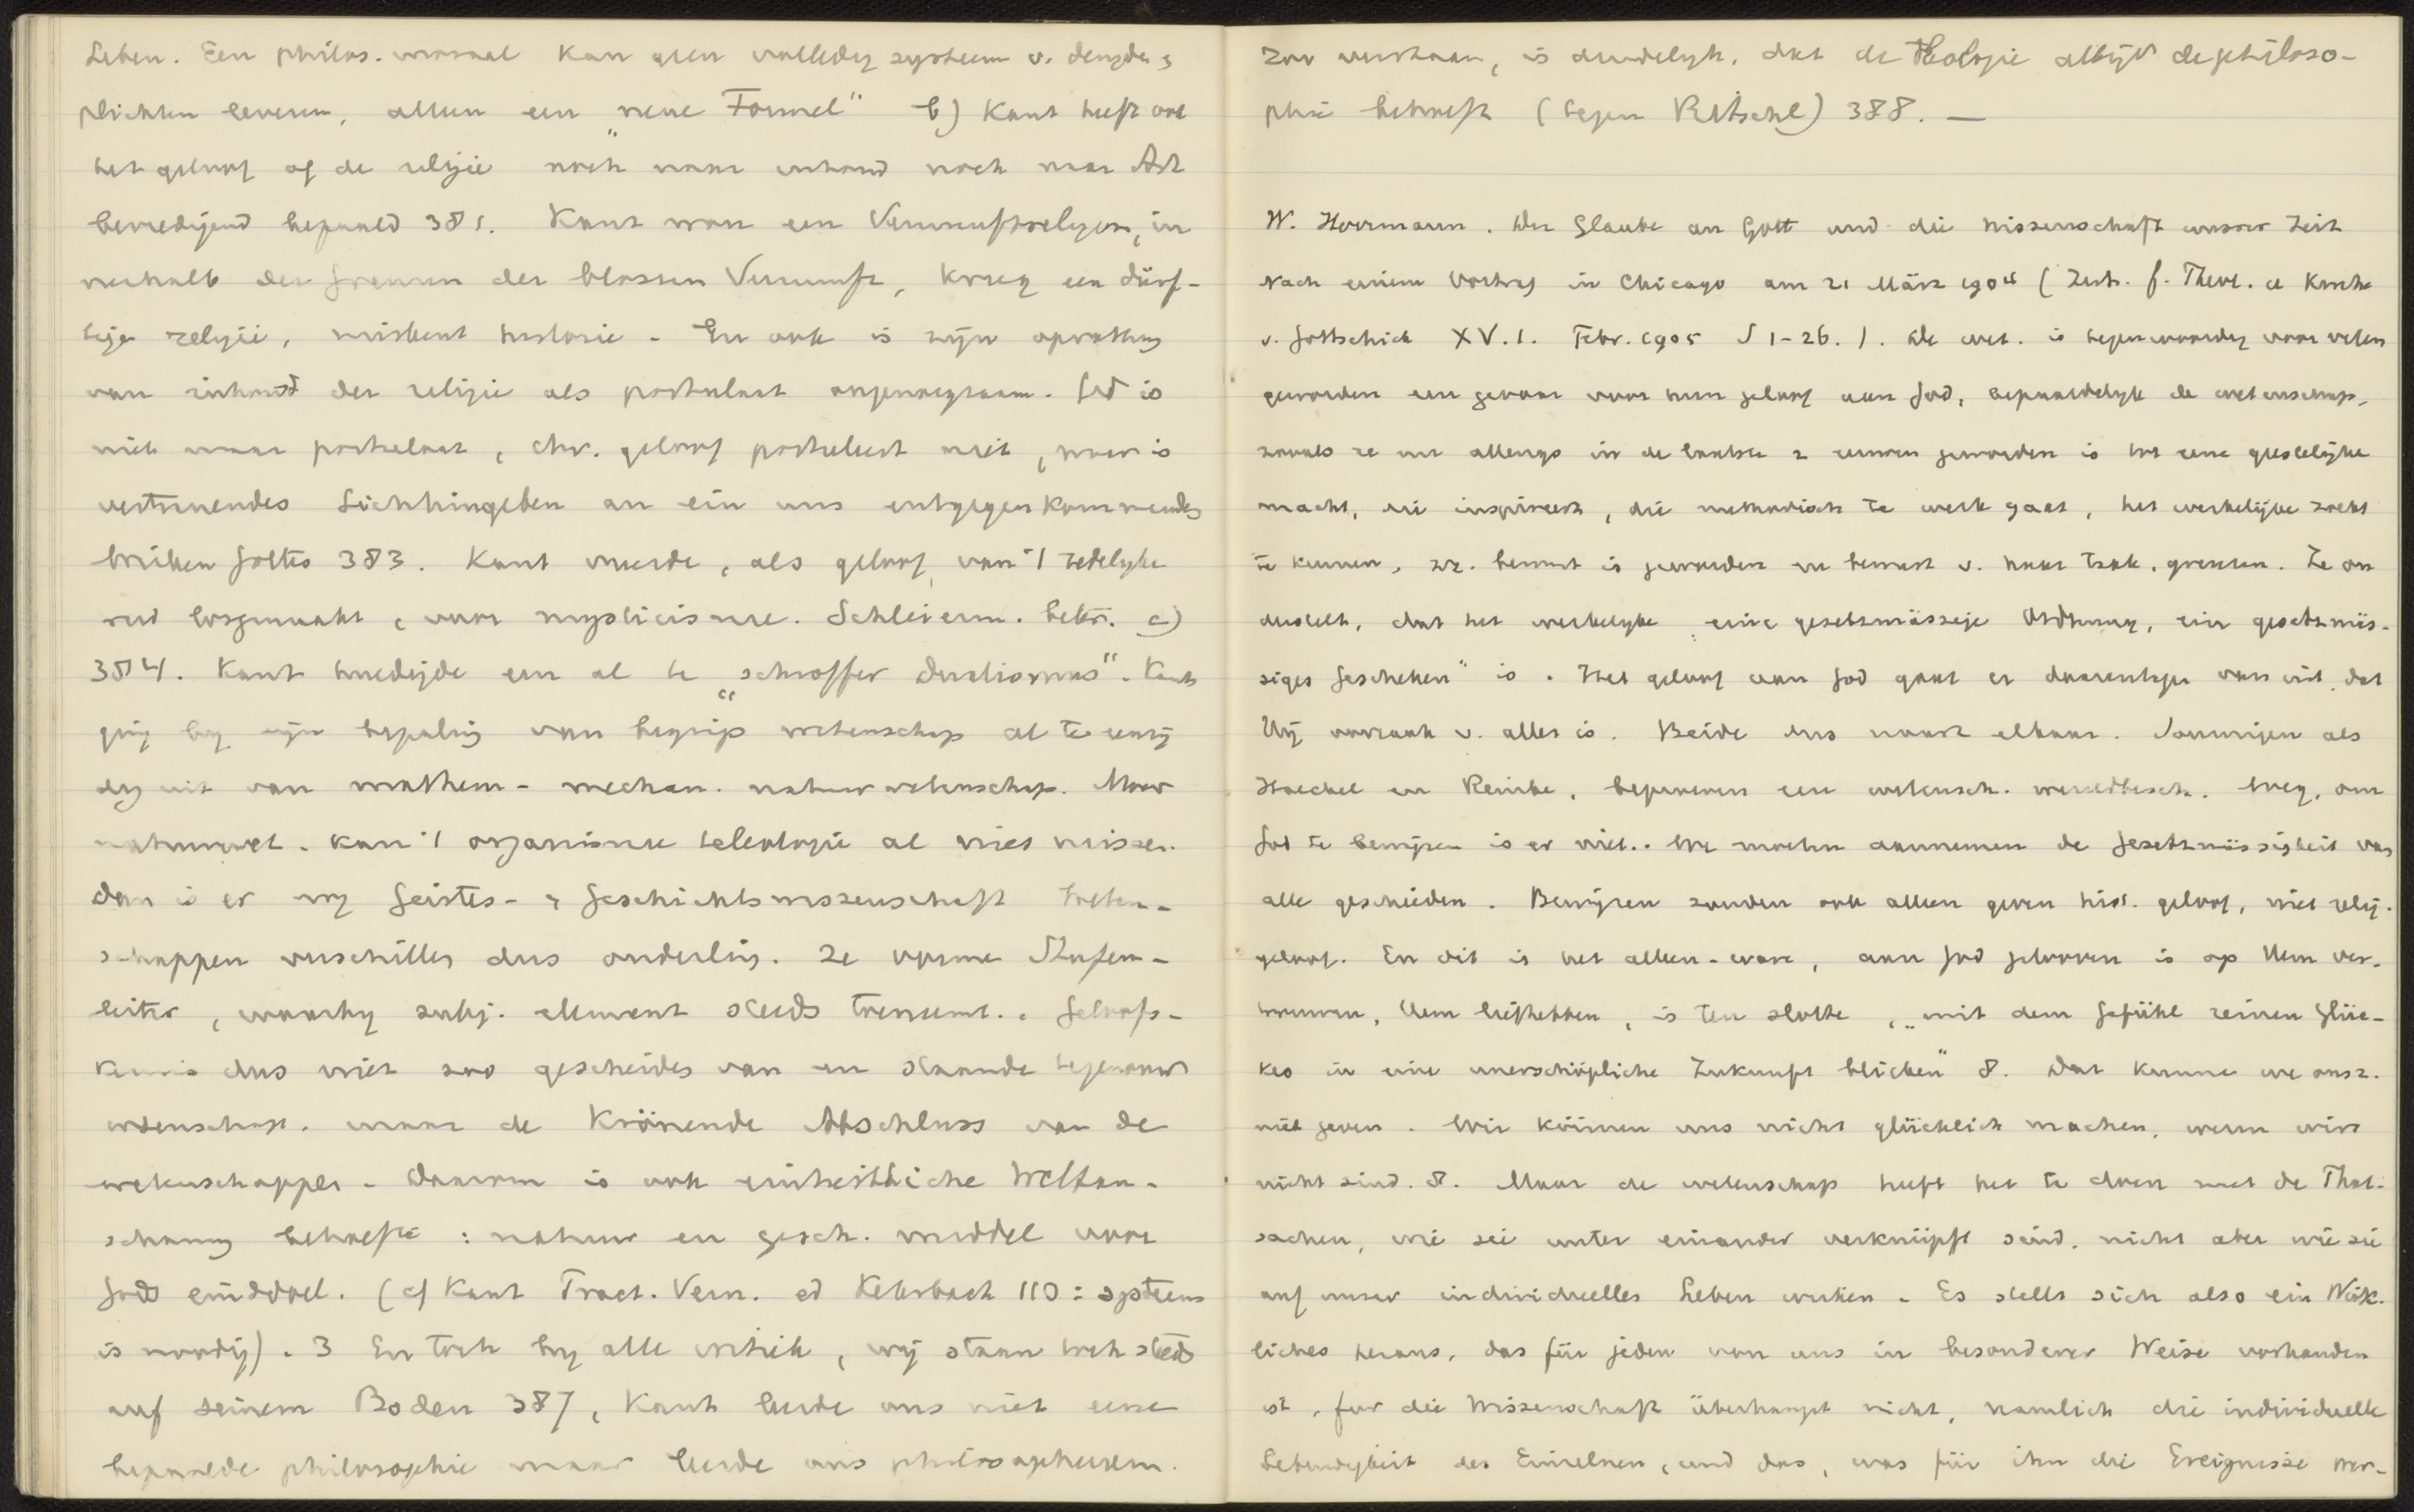 Leben. Een philos. moraal kan geen volledig systeem v. deugden &
plichten leveren, alleen een „neue Formel” b) Kant heeft ook
het geloof of de religie noch naar inhoud noch naar Art
bevredigend bepaald 381. Kant wou een Vernunftreligion, in
nerhalb der Grenzen der blossen Vernunft, kreeg een dürf-
tige religie, miskent historie. En ook is zijn opvatting
van inhoud der religie als postulaat ongenoegzaam. God is
niet maar postulaat, chr. geloof postuleert niet, maar is
vertrauendes Sichhingeben an ein uns entgegenkommendes
Wirken Gottes 383. Kant vreesde, als geloof van 't zedelyke
werd losgemaakt, voor mysticisme. Schleierm. beter. c)
384. Kant huldigde een al te „schroffer Dualismus”. Kant
ging by zijn bepaling van begrip wetenschap al te eenzij
dig uit van mathem- mechan. natuurwetenschap. Maar
natuurwet. kan 't organisme teleologie al niet missen.
dan is er nog Geistes- & Geschichtswissenschaft Weten-
schappen verschillen dus onderling. Ze vormen Stufen-
leiter, waarby subj. element steeds toeneemt. Geloofs-
kennis dus niet zoo gescheiden van en staande tegenover
wetenschap. maar de Krönende Abschluss van de
wetenschappen. Daarom is ook einheitliche Weltan-
schauung behoefte: natuur en gesch. middel voor
Gods einddoel. (cf Kant Pract. Vern. ed Kehrbach 110: systeem
is noodig). 3 En toch by alle critiek, wij staan toch steeds
auf seinem Boden 387, Kant leerde ons niet eene
bepaalde philosophie maar leerde ons philosopheeren.
Zoo verstaan, is duidelyk, dat de theologie altijd de philoso-
phie behoeft (tegen Ritschl) 388. —
W. Herrmann. Der Glaube an Gott und die Wissenschaft unsrer Zeit
Nach einem Vortrag in Chicago am 21 März 1904 (Zeits. f. Theol. u Kirche
v. Gottschick XV.1. Febr. 1905 S 1-26.). De wet. is tegenwoordig voor velen
geworden een gevaar voor hun geloof aan God, bepaaldelyk de wetenschap,
zooals ze nu allengs in de laatste 2 eeuwen geworden is tot eene geestelijke
macht, die inspireert, die methodisch te werk gaat, het werkelijke zoekt
te kennen, zz. bewust is geworden en bewust v. haar taak, grenzen. Ze on
derstelt, dat het werkelyke „eine gesetzmässige Ordnung, ein gesetzmäs-
siges Geschehen” is. Het geloof aan God gaat er daarentegen van uit, dat
Hij oorzaak v. alles is. Beide dus naast elkaar. Sommigen als
Haeckel en Reinke, beproeven een wetensch. wereldbesch. Weg, om
God te bewijzen is er niet. We moeten aannemen de Gesetzmässigkeit van
alle geschieden. Bewijzen zouden ook alleen geven hist. geloof, niet relig.
geloof. En dit is het alleen-ware, aan God gelooven is op Hem ver-
trouwen, Hem liefhebben, is ten slotte, „mit dem Gefühl reinen Glüc-
kes in eine unerschöpliche Zukunft blicken” 8. Dat kunnen we onsz.
niet geven. Wir können uns nicht glücklich machen, wenn wirs
nicht sind. 8. Maar de wetenschap heeft het te doen met de That-
sachen, wie sie unter einander verknüpft sind, nicht aber wie sie
auf unser individuelles Leben wirken. Es stellt sich also ein Wirk-
liches heraus, das für jeden von uns in besonderer Weise vorhanden
ist, für die Wissenschaft überhaupt nicht, nämlich die individuelle
Lebendigkeit des Einzelnen, und das, was für ihn die Ereignisse wer-